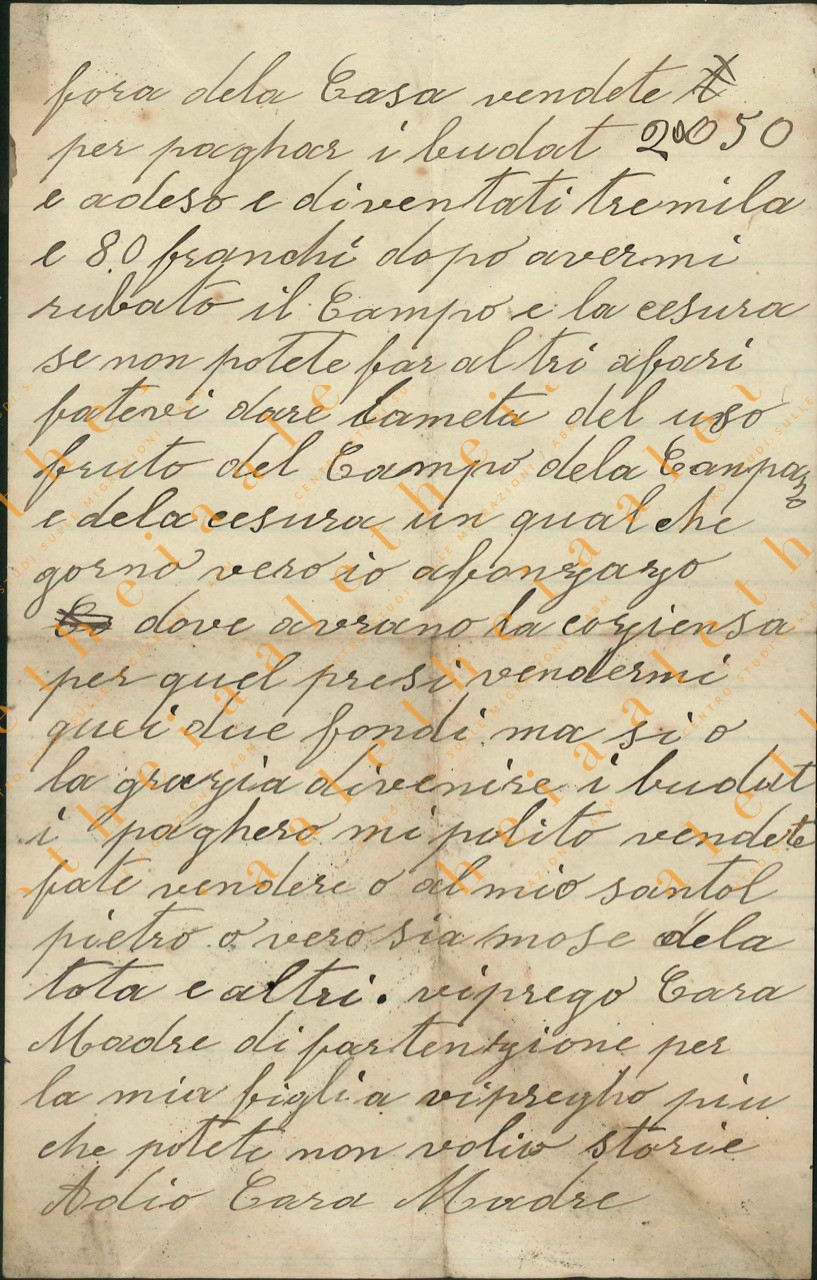 fora dela Casa vendete
per paghar i budat 20050
e adeso e diventati tremila
e 80 franchi dopo avermi
rubato il Campo e la cesura
se non potete far altri afari
fatevi dare lameta del uso
fruto del Campo dela Canpazo
e dela cesura un qualche
gorno vero io afonzazo
dove avrano la coziensa
per quel presi vendermi
quei due fondi ma si o
la grazia divenire i budat
i paghero mi pulito vendete
fate vendere o al mio santol
pietro o vero sia mose dela
tota e altri. viprego Cara
Madre di fartenzione per
la mia figlia vipregho piu
che potete non volio storie
Adio Cara Madre